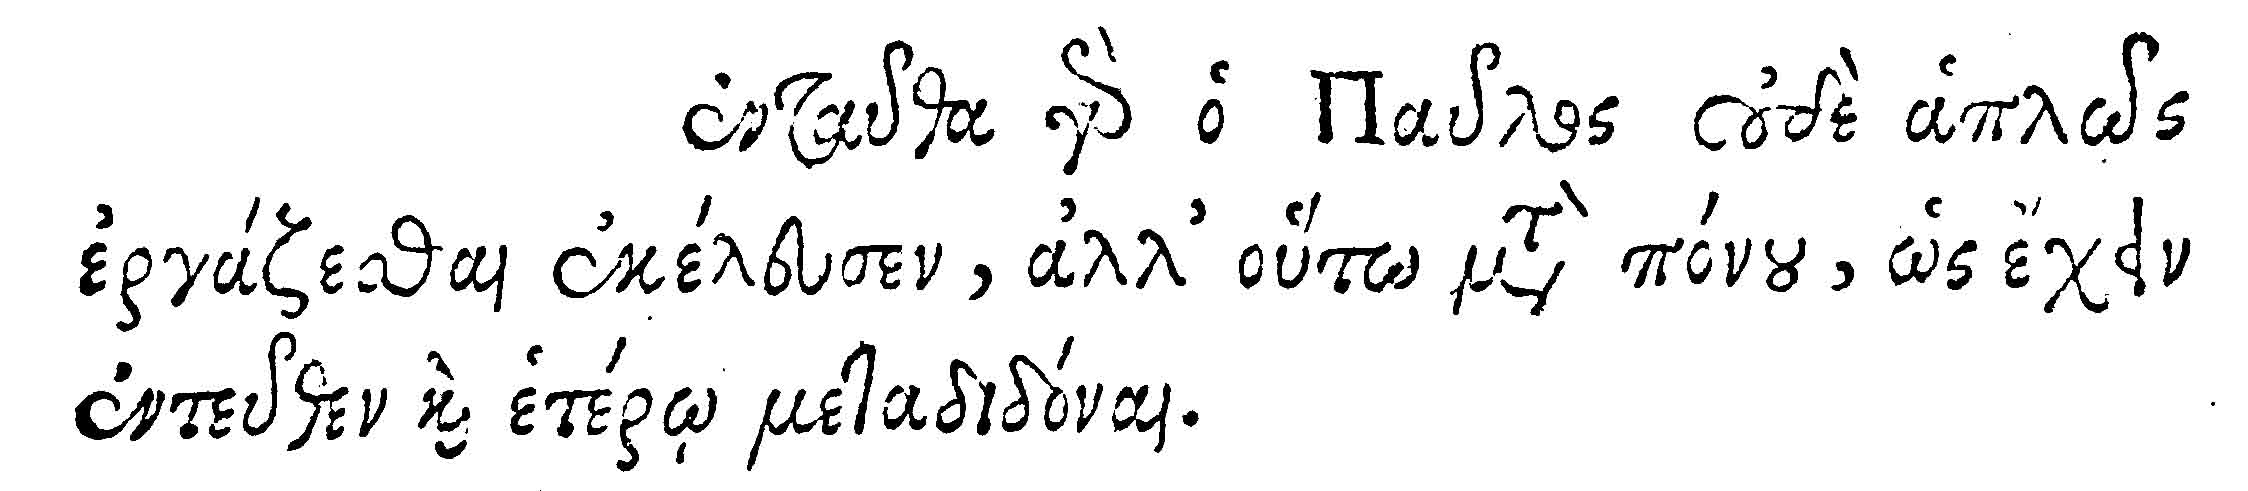 ἐνταῦθα γὰρ ὁ Παῦλος οὐδὲ ἁπλῶς
ἐργάζεσθαι ἐκέλευσεν, ἀλλ’ οὕτω μετὰ πόνου, ὡς ἔχειν
ἐντεῦθεν καὶ ἑτέρῳ μεταδιδόναι.